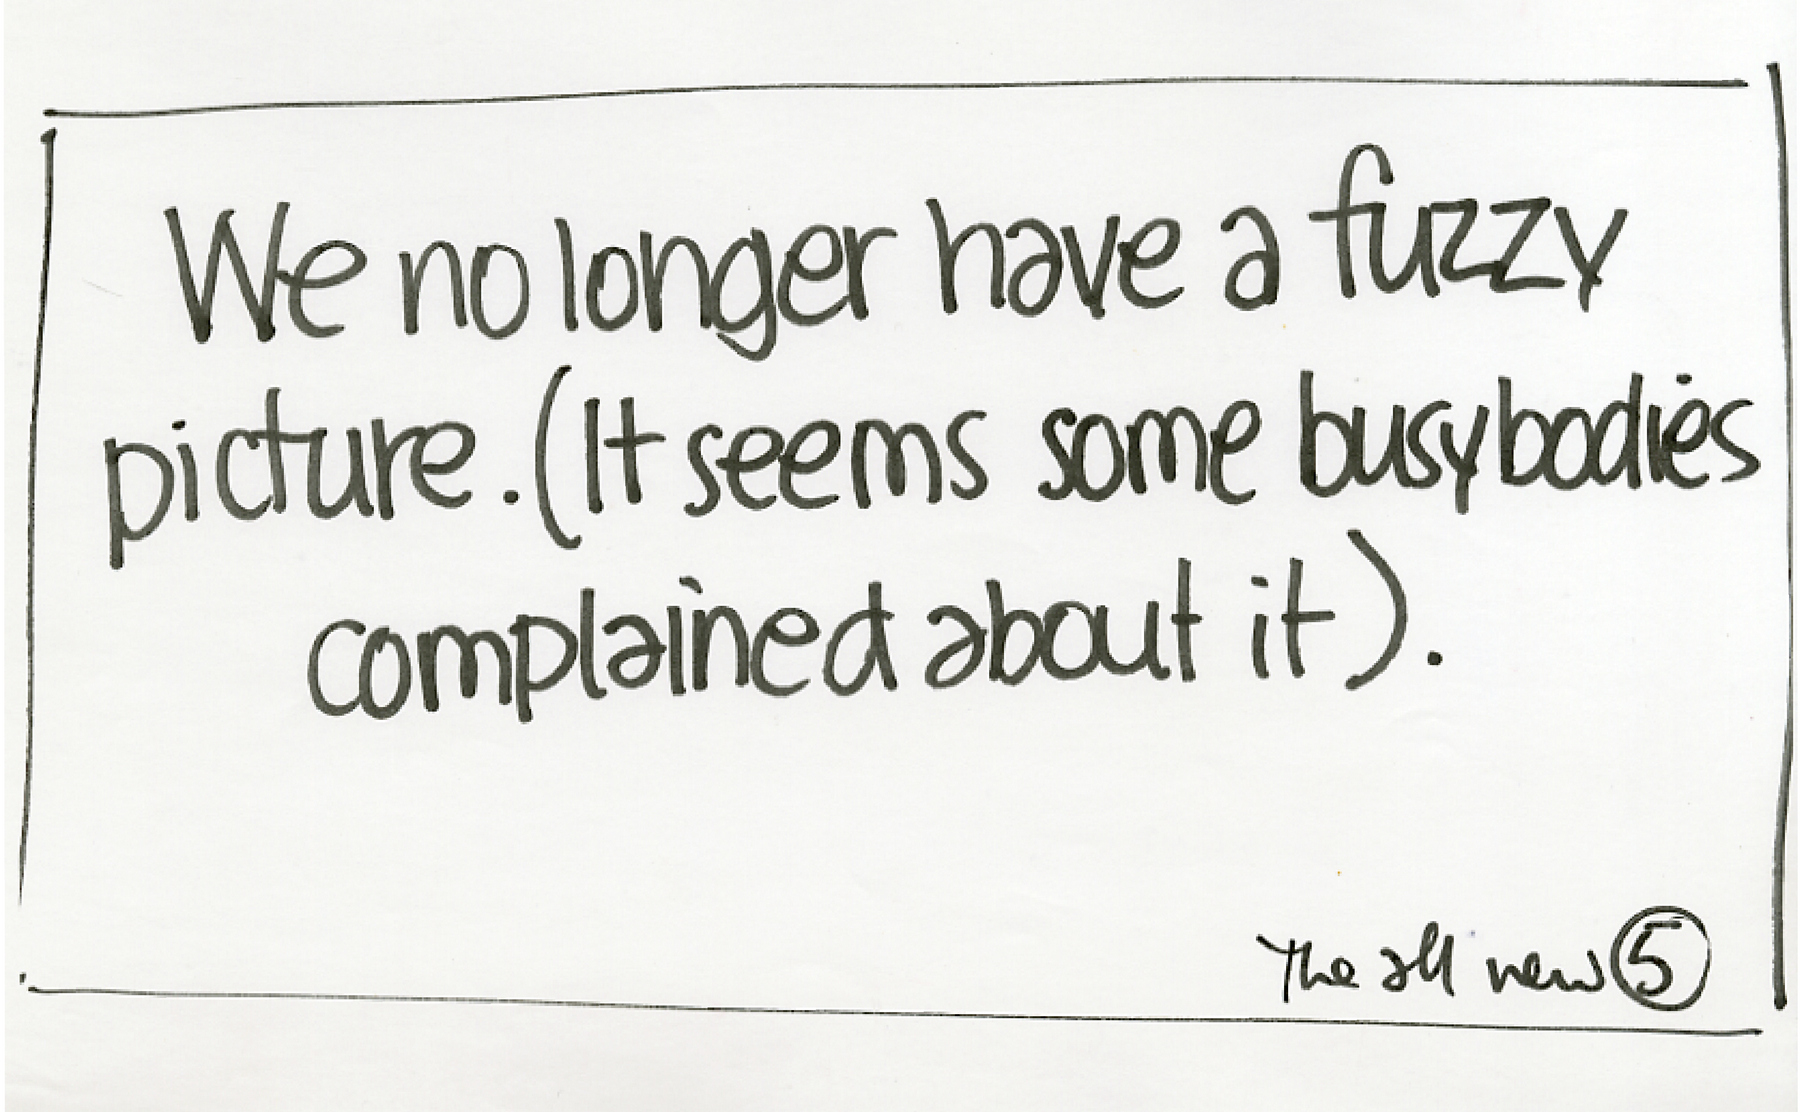 We no longer have a fuzzy
picture. (It seems some busybodies
complained about it).
The all new 5